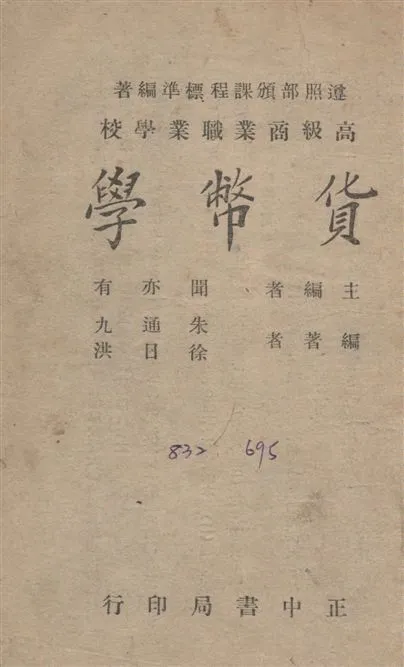 遵照部頒課程標準編著
高級商業職業學校
貨幣學
主編者 聞亦有
編著者 朱通九
徐日洪
832 695
正中書局印行